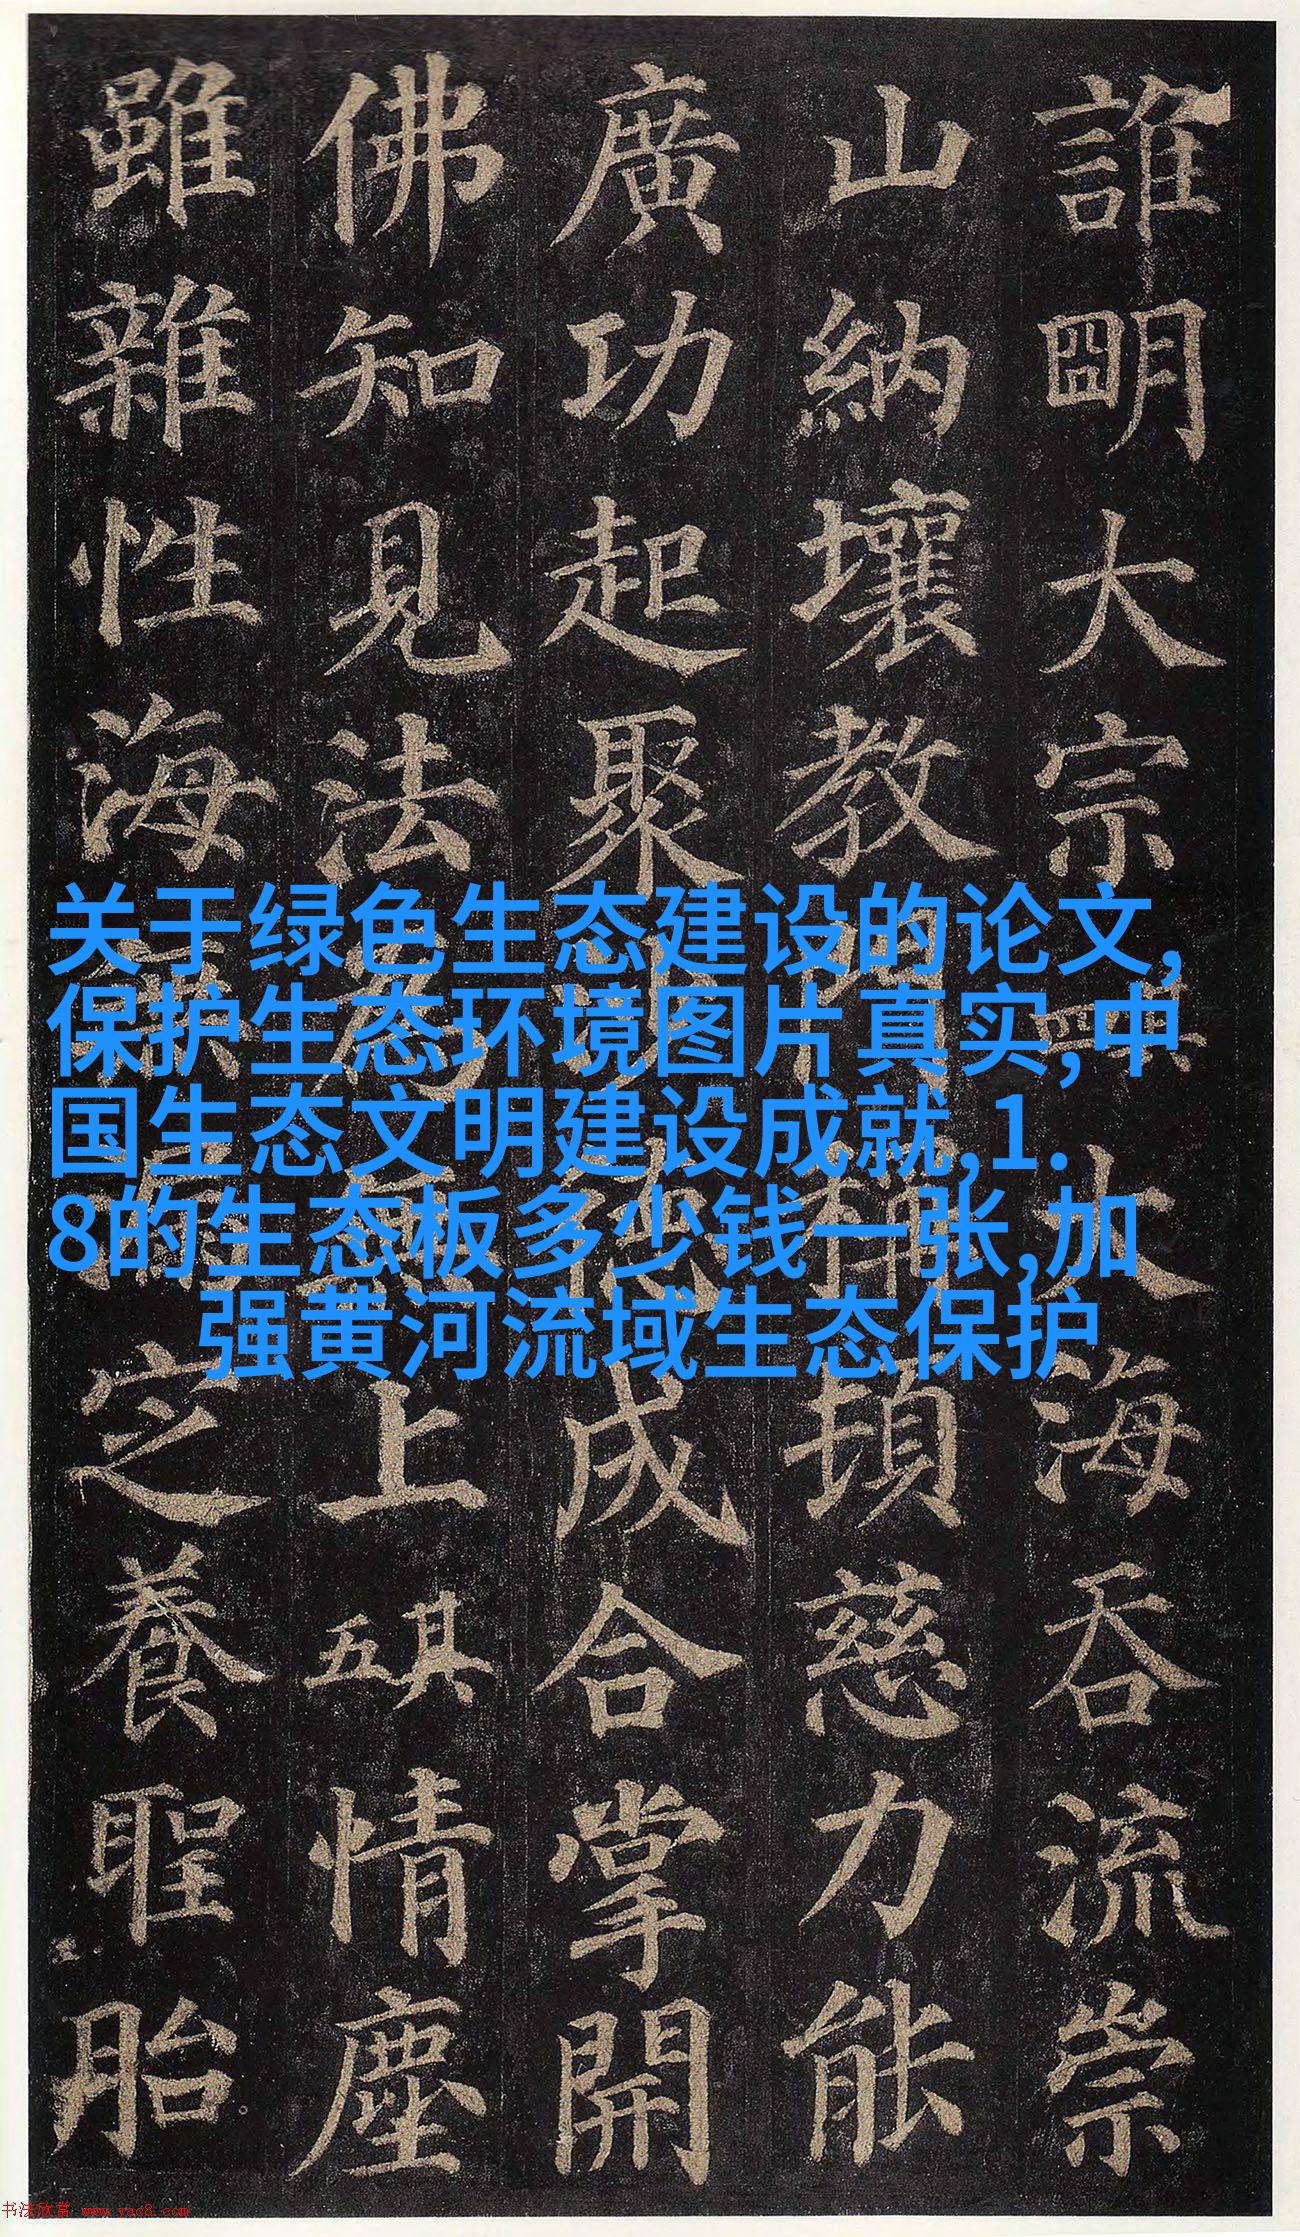 誰明大宗大海吞流崇
山納壤教頓慈力能
廣功起聚成合掌開
佛知見法上其五情塵
雖雜性海定養聖胎
关于绿色生态建设的论文,
保护生态环境图片真实,中
国生态文明建设成就,1.
8的生态板多少钱一张,加
强黄河流域生态保护
书法欣赏 www.yac8.com